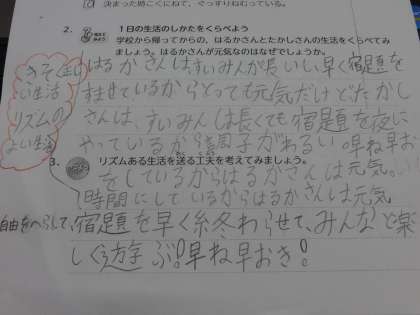 決まった時こくにねて、ぐっすりねむっている。
2. 1日の生活のしかたをくらべよう
学校から帰ってからの、はるかさんとたかしさんの生活をくらべてみ
ましょう。はるかさんが元気なのはなぜでしょうか。
はるかさんは、すいみんが長いし、早く宿題を
すませているからとっても元気だけどたかし
さんは、すいみんは長くても宿題を夜に
やっているから調子がわるい。早ね早お
きそく正し
い生活
リズムの
よい生活
3. リズムある生活を送る工夫を考えてみましょう。
をしているからはるかさんは元気。い
時間にしているからはるかさんは元気
自由をへらして、宿題を早く終わらせて、みんなと楽
しく遊ぶ!早ね早おき!